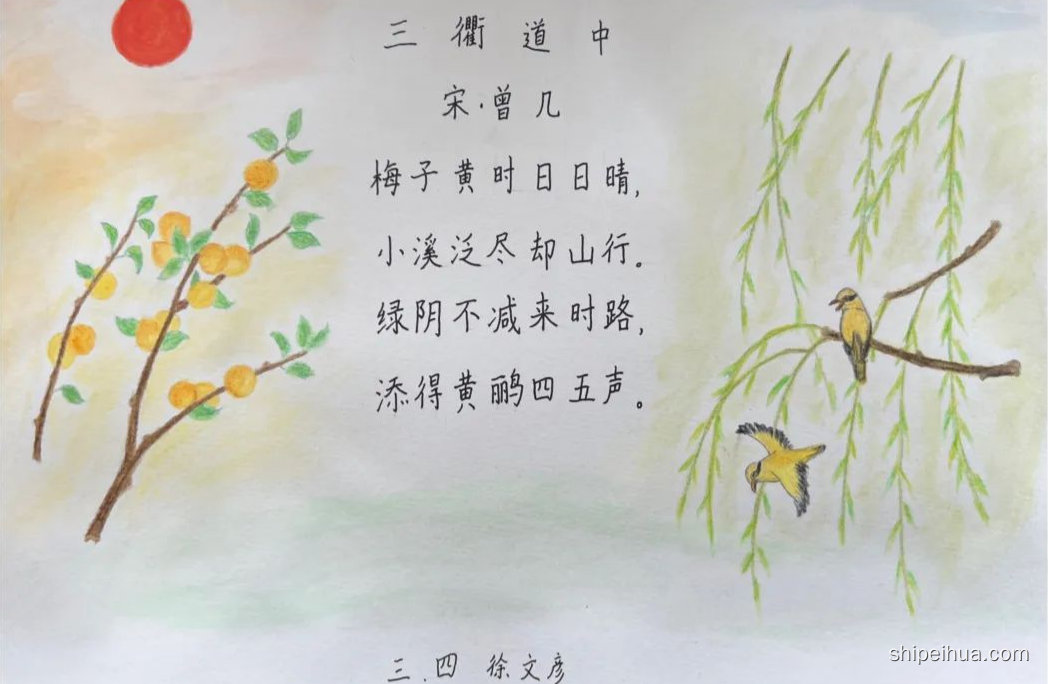 三衢道中
宋·曾几
梅子黄时日日晴,
小溪泛尽却山行。
绿阴不减来时路,
添得黄鹂四五声。
三.四 徐文彦
shipeihua.com